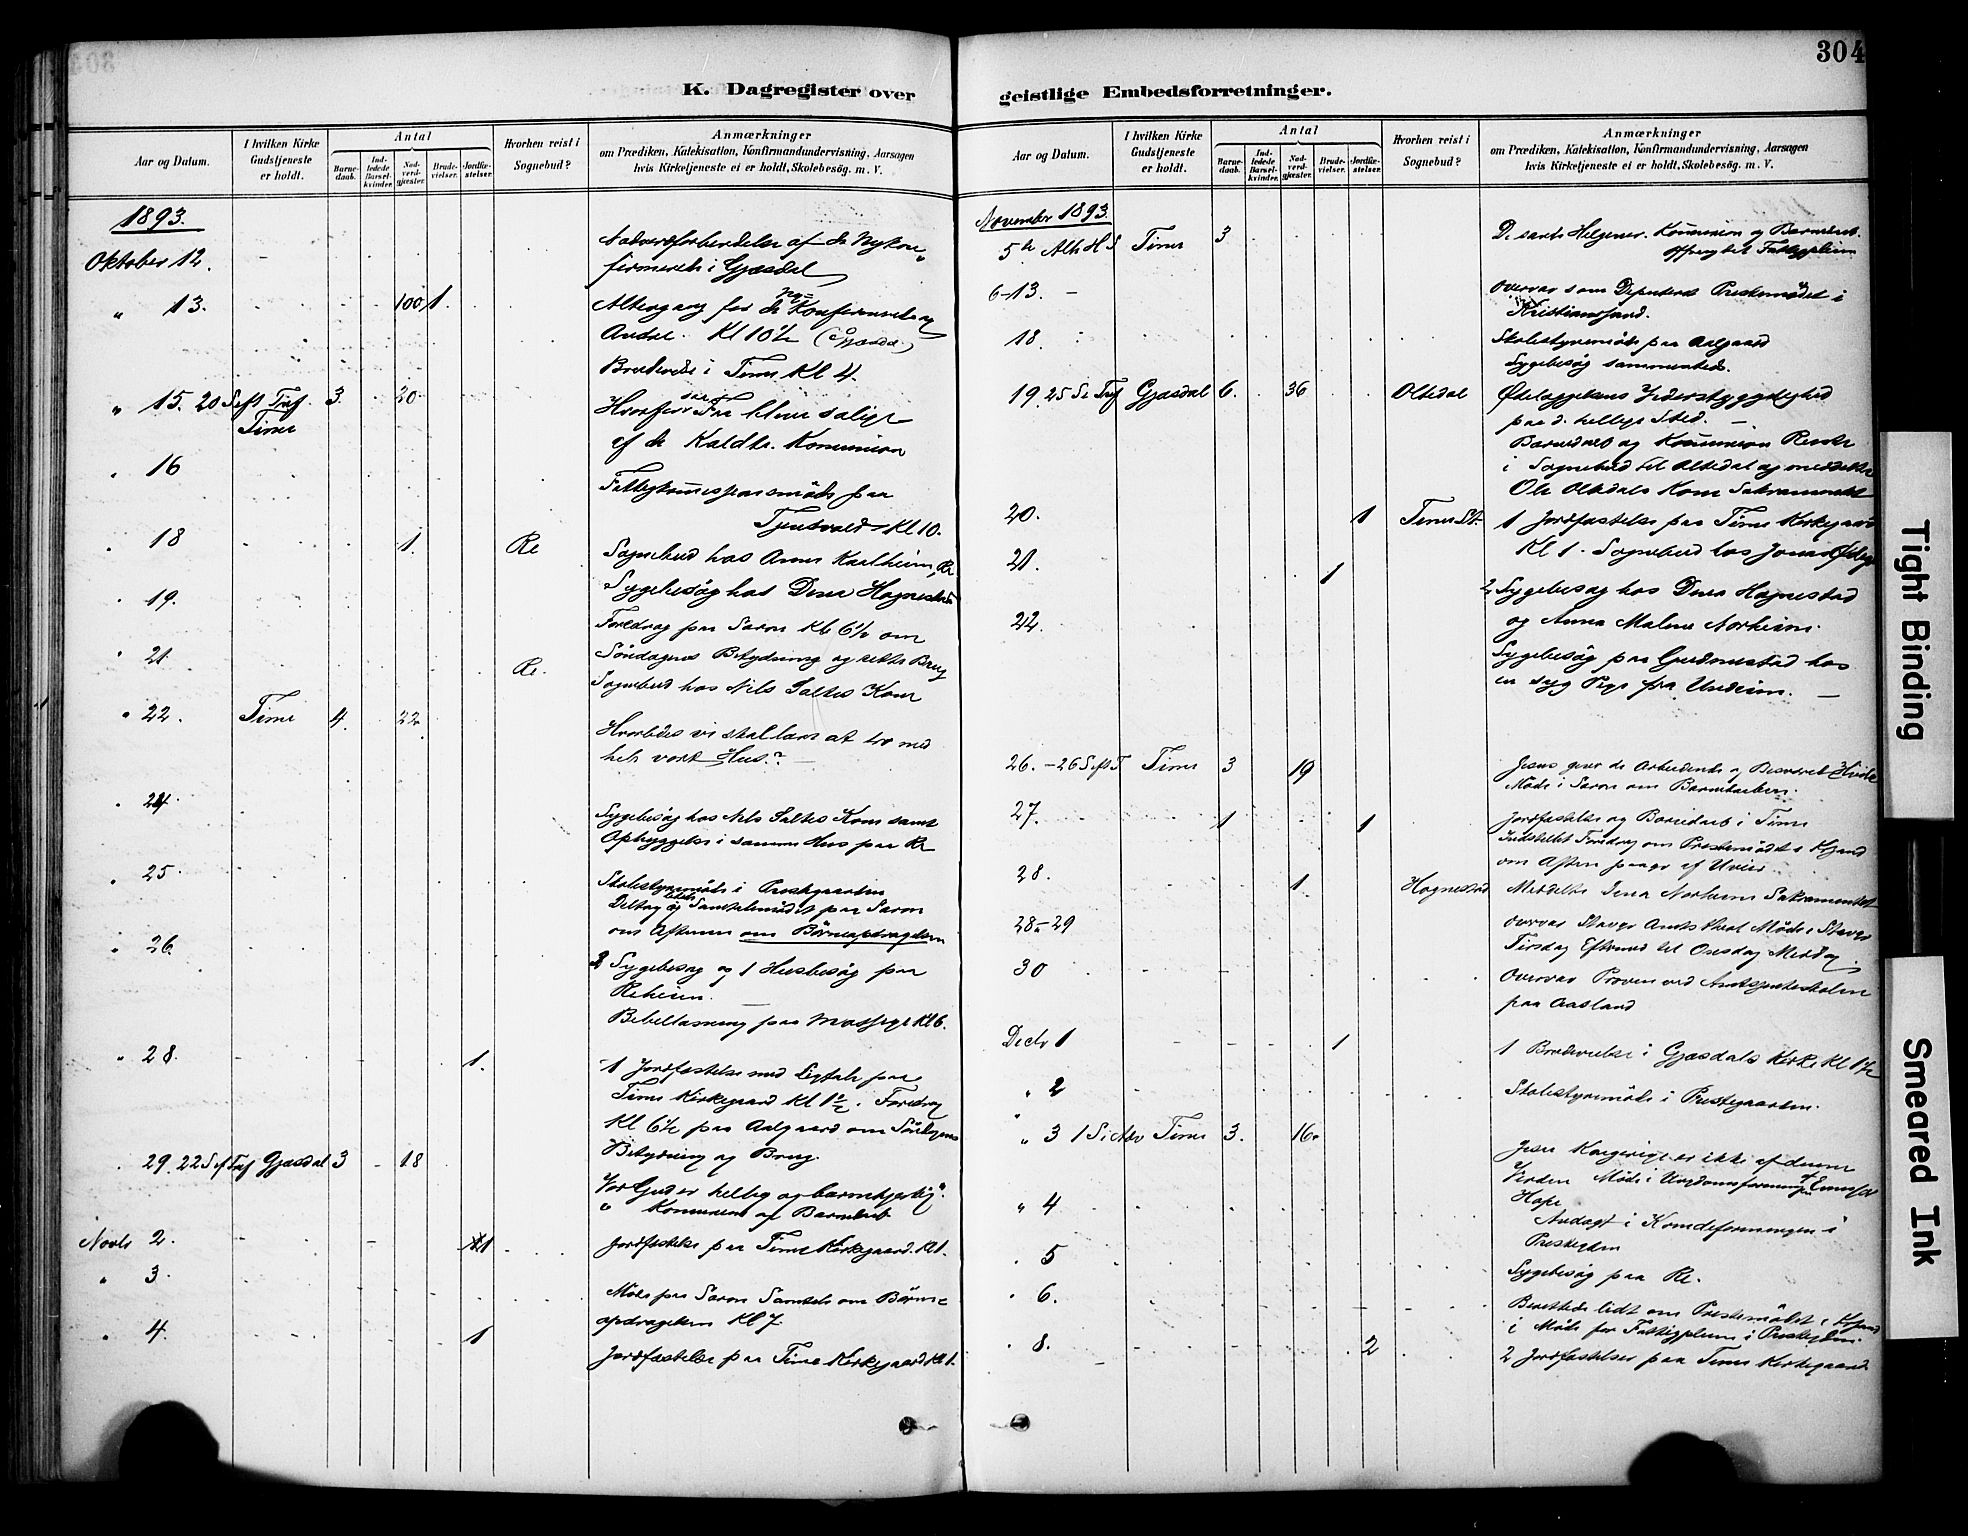 304
K. Dagregister over
Aar og Datum.
I hvilken Kirke Gudstjeneste er holdt.
Antal
Barne-daab.
Ind-ledede Barsel-kvinder.
Nad-verd-gjæster.
Brude-vielser.
Jordfæ-stelser.
Hvorhen reist i Sognebud?
Anmærkninger
om Prædiken, Katekisation, Konfirmandundervisning, Aarsagen
hvis Kirketjeneste ei er holdt, Skolebesög. m. V.
1893.
Oktober 12.
Nadverdforberedelse af de Nykon„
firmerede i Gjæsdal
„ 13. 100 1.
Altergang for de Ny= Konfirmerede og
Andre. Kl 10½ (Gjæsdal)
Brudevielse i Time Kl 4.
„ 15. 20 S eft Tref. Time 3. 20
Hvorfor saa Faa blive salige
af de Kaldte. Kommunion
„ 16
paa
Tjentvold Kl 10.
„ 18 1. Re
Sognebud hos Anna Kaalheim, Re
„ 19.
Sygebesög hos Dina Hognestad
Foredrag paa Saron Kl 6½ om
„ 21 Re.
Söndagens Betydning og rette Brug
Sognebud hos Nils Saltes Kone
„ 22. Time 4. 22
Hvorledes vi skal lære at tro med
hele vort Hus?
„ 24
Sygebesög hos Nils Saltes Kone samt
Opbyggelse i samme Hus paa Re
„ 25
Skolestyremöde i Prestegaarden
Deltog og ledede Samtalemödet paa Saron
om Aftenen om Börneopdragelsen
„ 26.
2 Sygebesög og 1 Husbesög paa
Reheim.
Bibellæsning paa Kl 6.
„ 28. 1.
1 Jordfæstelse med Ligtale paa
Time Kirkegaard Kl 1½. Foredrag
Kl 6½ paa Aalgaard om Söndagens
Betydning og Brug.
„ 29. 22 S ef Tref Gjæsdal 3 18
Vor Gud er hellig og barmhjertig".
Kommunion og Barnedaab
Novb 2. 1
Jordfæstelse paa Time Kirkegaard. Kl 1.
„ 3.
Möde paa Saron Samtale om Börne
opdragelsen Kl 7
„ 4. 1
Jordfæstelse paa Time Kirkegaard Kl 1.
geistlige Embedsforretninger.
Aar og Datum.
I hvilken Kirke Gudstjeneste er holdt.
Antal
Barne-daab.
Ind-ledede Barsel-kvinder.
Nad-verd-gjæster.
Brude-vielser.
Jordfæ-stelser.
Hvorhen reist i Sognebud?
Anmærkninger
om Prædiken, Katekisation, Konfirmandundervisning, Aarsagen
hvis Kirketjeneste ei er holdt, Skolebesög. m. V.
November 1893.
5te Alle H S Time 3
De sande Helgener. Kommunion og Barnedaab.
Offer til Fattigpleien
6-13. -
Overvar som Deputeret Prestemödet i
Kristianssand.
18.
Skolestyremöde paa Aalgaard
Sygebesög sammesteds.
19. 25 S e Tref Gjæsdal 6. 36 Oltedal
Ödelæggelsens Vederstyggelighed
paa d. hellige Sted. —
Barnedaab og Kommunion Reiste
i Sognebud til Oltedal og meddelte
Ole Oltedals Kone Sakramentet
20. 1 Time St.
1 Jordfæstelse paa Time Kirkegaard
Kl 1. Sognebud hos Jonas
21. 1
2 Sygebesög hos Dina Hognestad
22.
og Anna Malene Norheim.
Sygebesög paa Gudmestad hos
en syg Pige fra Undheim. —
26. - 26 S eft T Time 3 19
Jesus giver de Arbeidende og Besværede Hvile
Möde i Saron om
27. 1 1
Jordfæstelse og Barnedaab i Time
Indstillet Foredrag om Prestemödet i Krsand
om Aften paagr af Uveir
28. 1. Hognestad
Meddelte Dina Norheim Sakramentet
28-29
Overvar Stavgr Amts Möde i Stavgr
Tirsdag Eftermd til Onsdag Middag.
30
Overvar Pröven ved Amtsskolen
paa Aasland
Decbr 1 1
1 Brudevielse i Gjæsdals Kirke Kl 1½
„ 2
Skolestyremöde i Prestegaarden.
„ 3 1 S i Adv Time 3. 16.
Jesu Kongerige er ikke af denne
Verden Möde i Ungdomsforening
„ 4
Hope
Andagt i Kvindeforeningen i
„ 5
Sygebesög paa Re.
„ 6.
Berettede lidt om Prestemödet i Krsand
i Möde for Fattigpleien i
„ 8. 2
2 Jordfæstelser paa Time Kirkegaard
Tight Binding
Smeared Ink